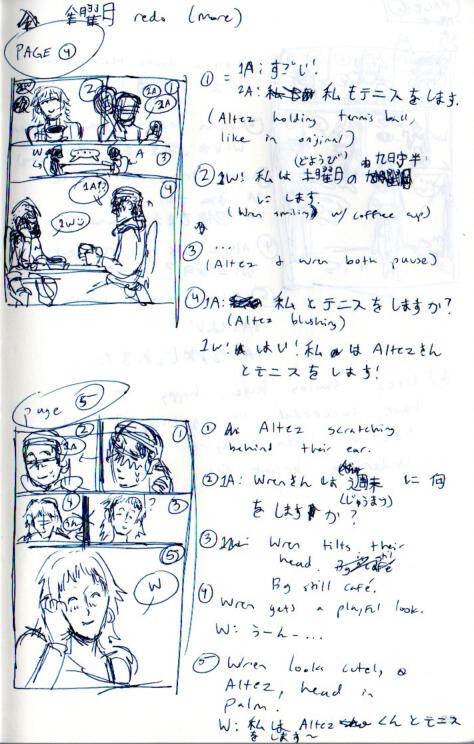 金曜日 redo (more)
PAGE 4
① = 1A: すごい!
2A: 私もテニスをします。
(Altez holding tennis ball,
like in original)
(どようび)
② 1W: 私は土曜日の九時半
にします。
(Wren smiling w/ coffee cup)
③ ...
(Altez & Wren both pause)
④ 1A: 私とテニスをしますか?
(Altez blushing)
1W: はい! 私はAltezさん
とテニスをします!
2
1
2A
W
A
3
1A!
4
1W
page 5
① Altez scratching
behind their ear.
② 1A: Wrenさんは週末に何
(しゅうまつ)
をしますか?
③ Wren tilts their
head.
Bg still café.
④ Wren gets a playful look.
W: うーんー...
⑤ Wren looks cutely @
Altez, head in
palm.
W: 私はAltezくんとテニス
をします〜
2
1
1A
4
3
?
5
W